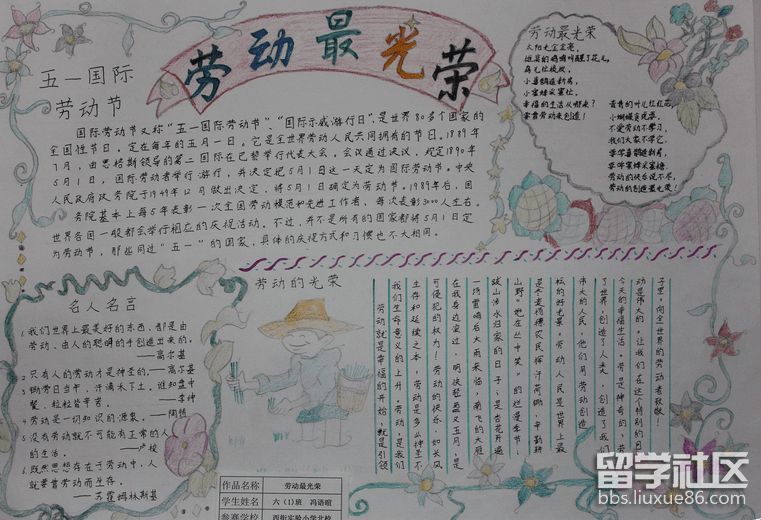 劳动最光荣
五一国际
劳动节
国际劳动节又称“五一国际劳动节”、“国际示威游行日”,是世界80多个国家的
全国性节日。定在每年的五月一日。它是全世界劳动人民共同拥有的节日。1889年
7月,由恩格斯领导的第二国际在巴黎举行代表大会。会议通过决议,规定1890年
5月1日,国际劳动者举行游行,并决定把5月1日这一天定为国际劳动节。中央
人民政府政务院于1949年12月做出决定,将5月1日确定为劳动节。1989年后,国
务院基本上每5年表彰一次全国劳动模范和先进工作者,每次表彰3000人左右。
世界各国一般都会举行相应的庆祝活动。不过,并不是所有的国家都将5月1日定
为劳动节,那些同过“五一”的国家,具体的庆祝方式和习惯也不太相同。
劳动最光荣
太阳光金亮亮,
雄鸡唱
花儿
小喜鹊造新房,
小蜜蜂采蜜忙,
幸福的生活从哪里来?
要靠劳动来创造!
青青的叶儿红红花,
小蝴蝶贪玩耍,
不爱劳动不学习,
我们大家不学它,
要学喜鹊造新房,
要学蜜蜂采蜜糖,
劳动的快乐说不尽,
劳动的创造最光荣!
名人名言
1.我们世界上最美好的东西,都是由
劳动、由人的聪明的手创造出来的。
——高尔基
2.只有人的劳动才是神圣的——高尔基
3.锄禾日当午,汗滴禾下土。谁知盘中
餐,粒粒皆辛苦。——李绅
4.劳动是一切知识的源泉。——陶铸
5.没有劳动就不可能有正常的人
的生活。——卢梭
6.既然思想存在于劳动中,人
就要靠劳动而生存。
——苏霍姆林斯基
劳动的光荣
劳动就是幸福的开始,就是引领
我们生命意义的上升。劳动,是我们
生存和延续之本,劳动是多么神圣不
可侵犯的权力!劳动的快乐,如长风
在我身边穿过,明快轻盈。五月,是
一场雷鸣后大雨来临,南飞的大雁
跋山涉水归家的日子;是杏花开遍
山野,她在丛中笑的烂漫季节;
是千麦
农民挥汗荷锄、辛勤耕
耘的好光景。劳动人民是世界上最
伟大的人民,他们用劳动创造
了世界,创造了人类,创造了我们
今天的幸福生活。劳
是神奇的,劳
动是伟大的,让我们在这个特别的日
子里,向全世界的劳动者致敬!
作品名称 劳动最光荣
学生姓名 六(1)班 冯语暄
参赛学校 西街实验小学北校
留学社区
bbs.liuxue86.com